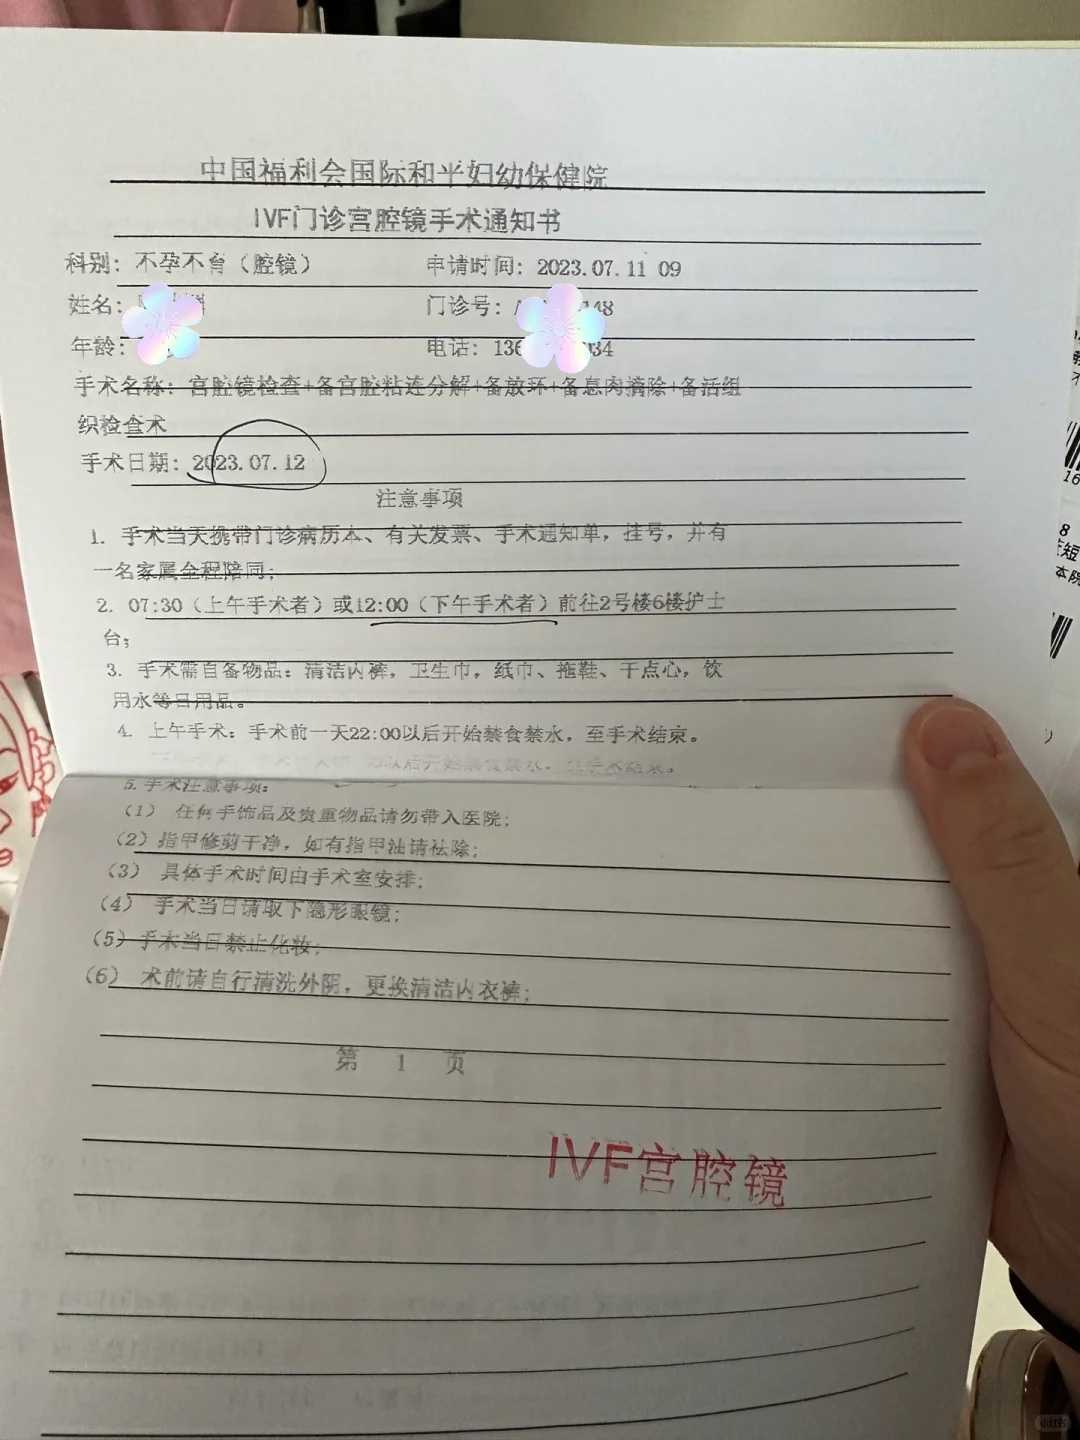 中国福利会国际和平妇幼保健院
IVF门诊宫腔镜手术通知书
科别：不孕不育（腔镜） 申请时间：2023.07.11 09
姓名： 门诊号： 48
年龄： 电话：136 34
手术名称：宫腔镜检查+备宫腔粘连分解+备放环+备息肉摘除+备活组
织检查术
手术日期：2023.07.12
注意事项
1. 手术当天携带门诊病历本、有关发票、手术通知单，挂号，并有
一名家属全程陪同；
2. 07:30（上午手术者）或12:00（下午手术者）前往2号楼6楼护士
台；
3. 手术需自备物品：清洁内裤，卫生巾，纸巾、拖鞋、干点心，饮
用水等日用品。
4. 上午手术：手术前一天22:00以后开始禁食禁水，至手术结束。
以后开始禁食禁水，至手术结束。
5.手术注意事项：
（1） 任何手饰品及贵重物品请勿带入医院；
（2）指甲修剪干净，如有指甲油请祛除；
（3） 具体手术时间由手术室安排；
（4） 手术当日请取下隐形眼镜；
（5）手术当日禁止化妆；
（6） 术前请自行清洗外阴，更换清洁内衣裤；
第 1 页
IVF宫腔镜
16
8
本院